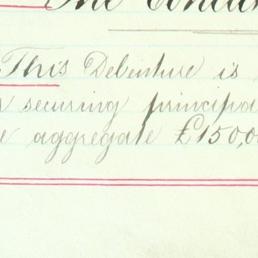 The Condi
This Debenture is
securing principa
aggregate £150,0